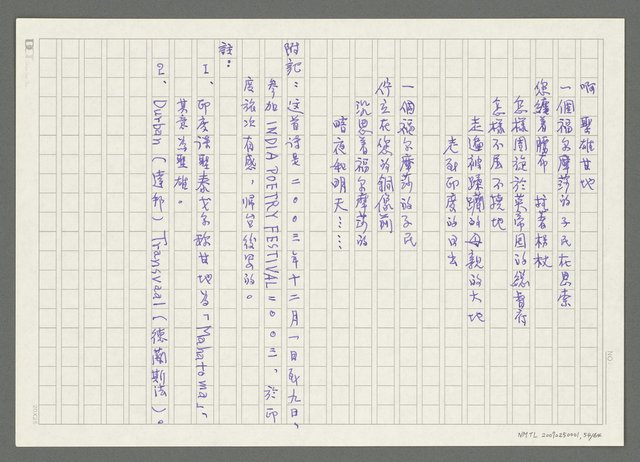 啊 聖雄甘地
一個福尔摩莎的子民在思索
您纏着腰布 拄著枴杖
怎樣周旋於英帝国的總督府
怎樣不屈不撓地
走遍被蹂躪的母親的大地
走向印度的日出
一個福尔摩莎的子民
佇立在您的銅像前
沉思着福尔摩莎的
暗夜和明天……
附記：這首詩是二〇〇三年十二月一日到九日，
参加INDIA POETRY FESTIVAL二〇〇三，於印
度旅次有感，歸台後寫的。
註：
1、印度詩聖泰戈尔称甘地為「Mahatoma」，
其意為聖雄。
2、Durban（達邦）Transvaal（德蘭斯法）。
NO.
NMTL 20090250001